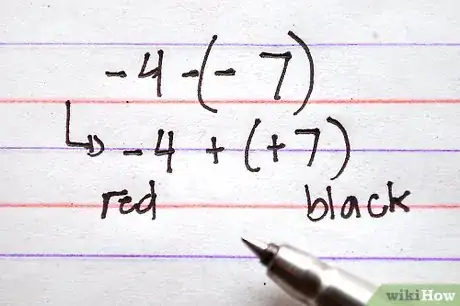 -4-(-7)
-4+(+7)
red black
wikiHow